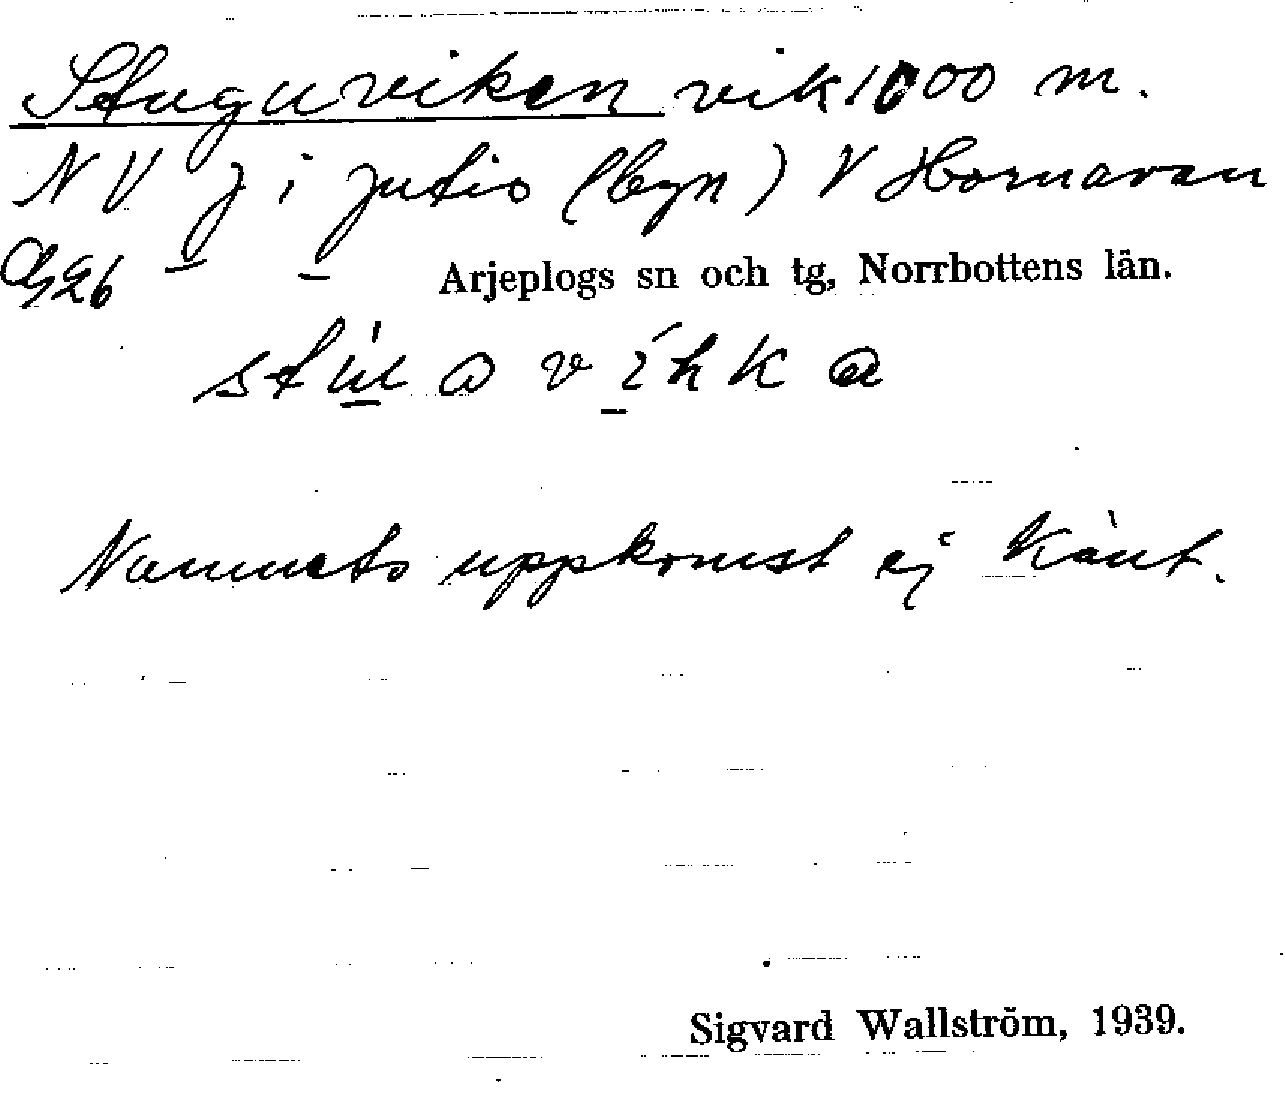 Stuguviken vik 1000 m.
NV j i jutis (byn) V Hornavan
Arjeplogs sn och tg, Norrbottens län.
Namnets uppkomst ej känt.
Sigvard Wallström, 1939.